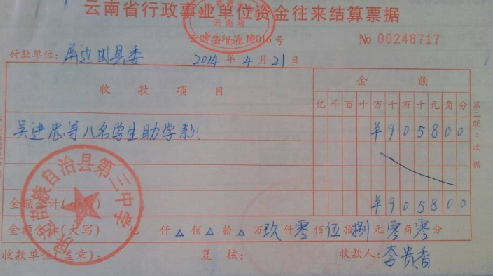 云南省行政事业单位资金往来结算票据
No 00248717
付款单位: 屏边团县委 2014 年 4 月 21 日
收款项目 金额
亿 千 百 十 万 千 百 十 元 角 分
等八名学生助学款 ¥ 9 0 5 8 0 0
金额合计(小写) ¥ 9 0 5 8 0 0
金额合计(大写) 亿 仟 佰 拾 万 玖 仟 零 佰 伍 拾 捌 元 零 角 零 分
收款单位(盖章): 复核: 收款人: 李贵香
自治县第三中学